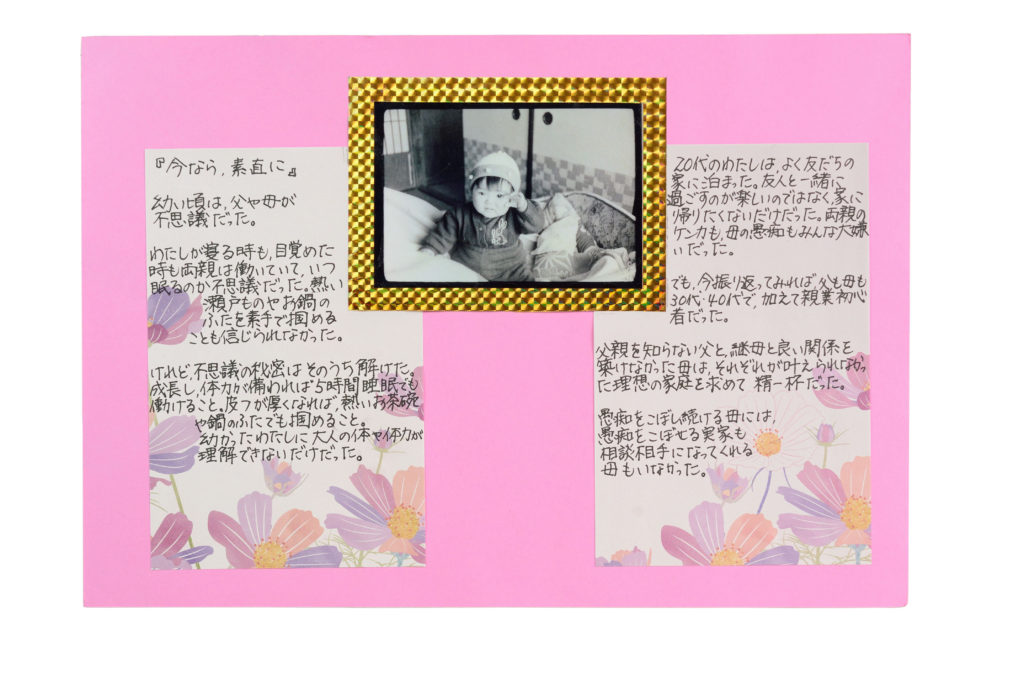 『今なら,素直に』
幼い頃は,父や母が
不思議だった。
わたしが寝る時も,目覚めた
時も両親は働いていて,いつ
眠るのか不思議だった。熱い
瀬戸ものやお鍋の
ふたを素手で掴める
ことも信じられなかった。
けれど,不思議の秘密はそのうち解けた。
成長し,体力が備われば5時間睡眠でも
働けること。皮フが厚くなれば,熱いお茶碗
や鍋のふたでも掴めること。
幼かったわたしに大人の体や体力が
理解できないだけだった。
20代のわたしは,よく友だちの
家に泊まった。友人と一緒に
過ごすのが楽しいのではなく,家に
帰りたくないだけだった。両親の
ケンカも,母の愚痴もみんな大嫌
いだった。
でも,今振り返ってみれば,父も母も
30代・40代で,加えて親業初心
者だった。
父親を知らない父と,継母と良い関係を
築けなかった母は,それぞれが叶えられなかっ
た理想の家庭を求めて 精一杯だった。
愚痴をこぼし続ける母には,
愚痴をこぼせる実家も
相談相手になってくれる
母もいなかった。